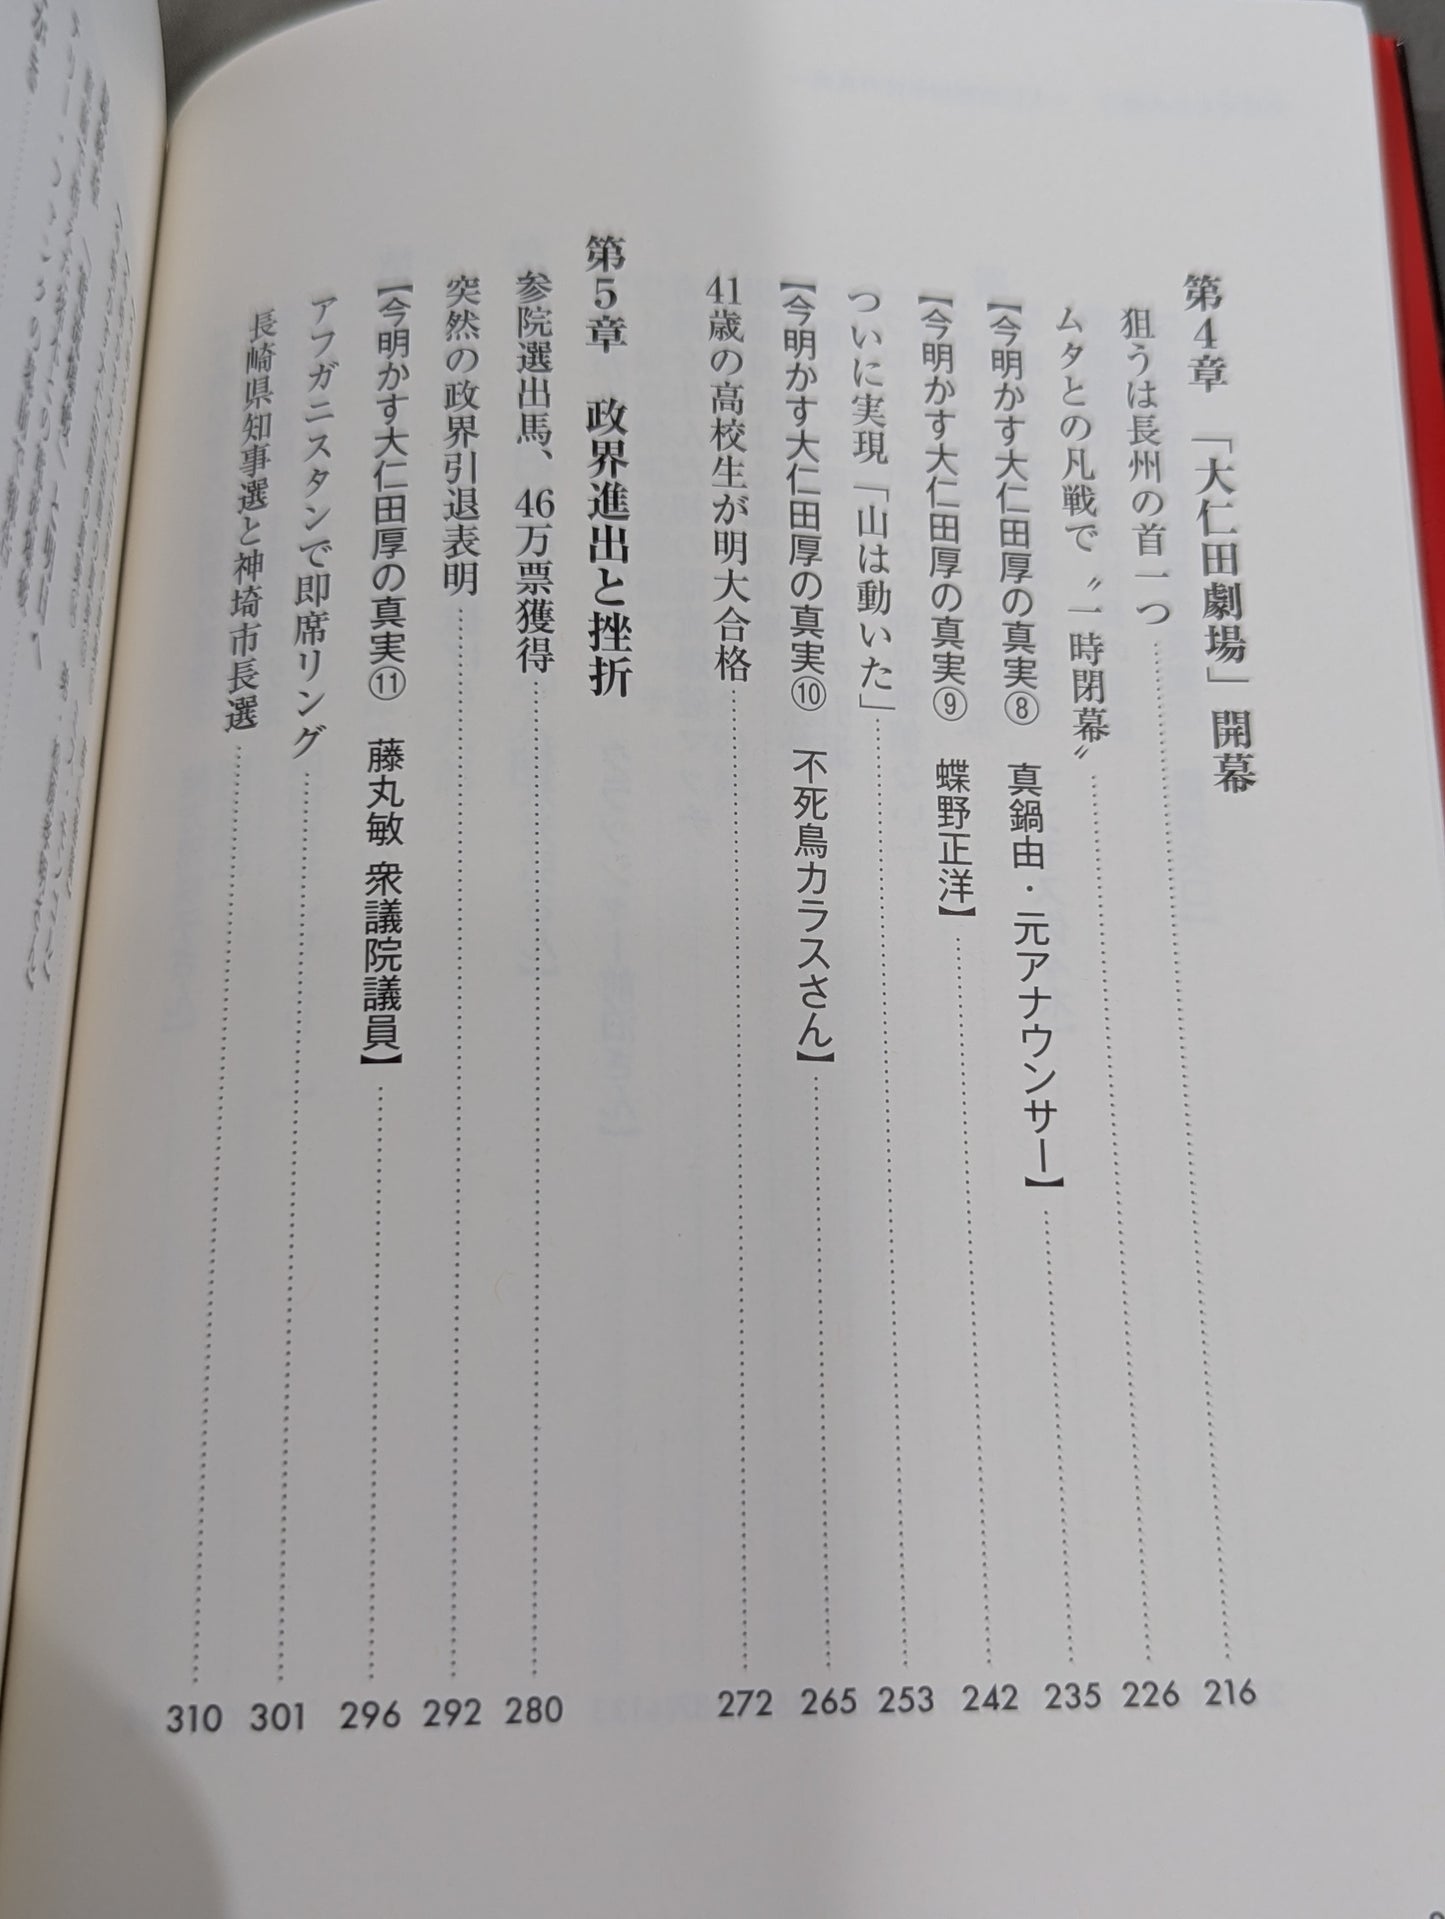 第4章　「大仁田劇場」開幕
狙うは長州の首一つ……216
ムタとの凡戦で〝一時閉幕〟……226
【今明かす大仁田厚の真実⑧　真鍋由・元アナウンサー】……235
【今明かす大仁田厚の真実⑨　蝶野正洋】……242
ついに実現「山は動いた」……253
【今明かす大仁田厚の真実⑩　不死鳥カラスさん】……265
41歳の高校生が明大合格……272
第5章　政界進出と挫折
参院選出馬、46万票獲得……280
突然の政界引退表明……292
【今明かす大仁田厚の真実⑪　藤丸敏 衆議院議員】……296
アフガニスタンで即席リング……301
長崎県知事選と神埼市長選……310